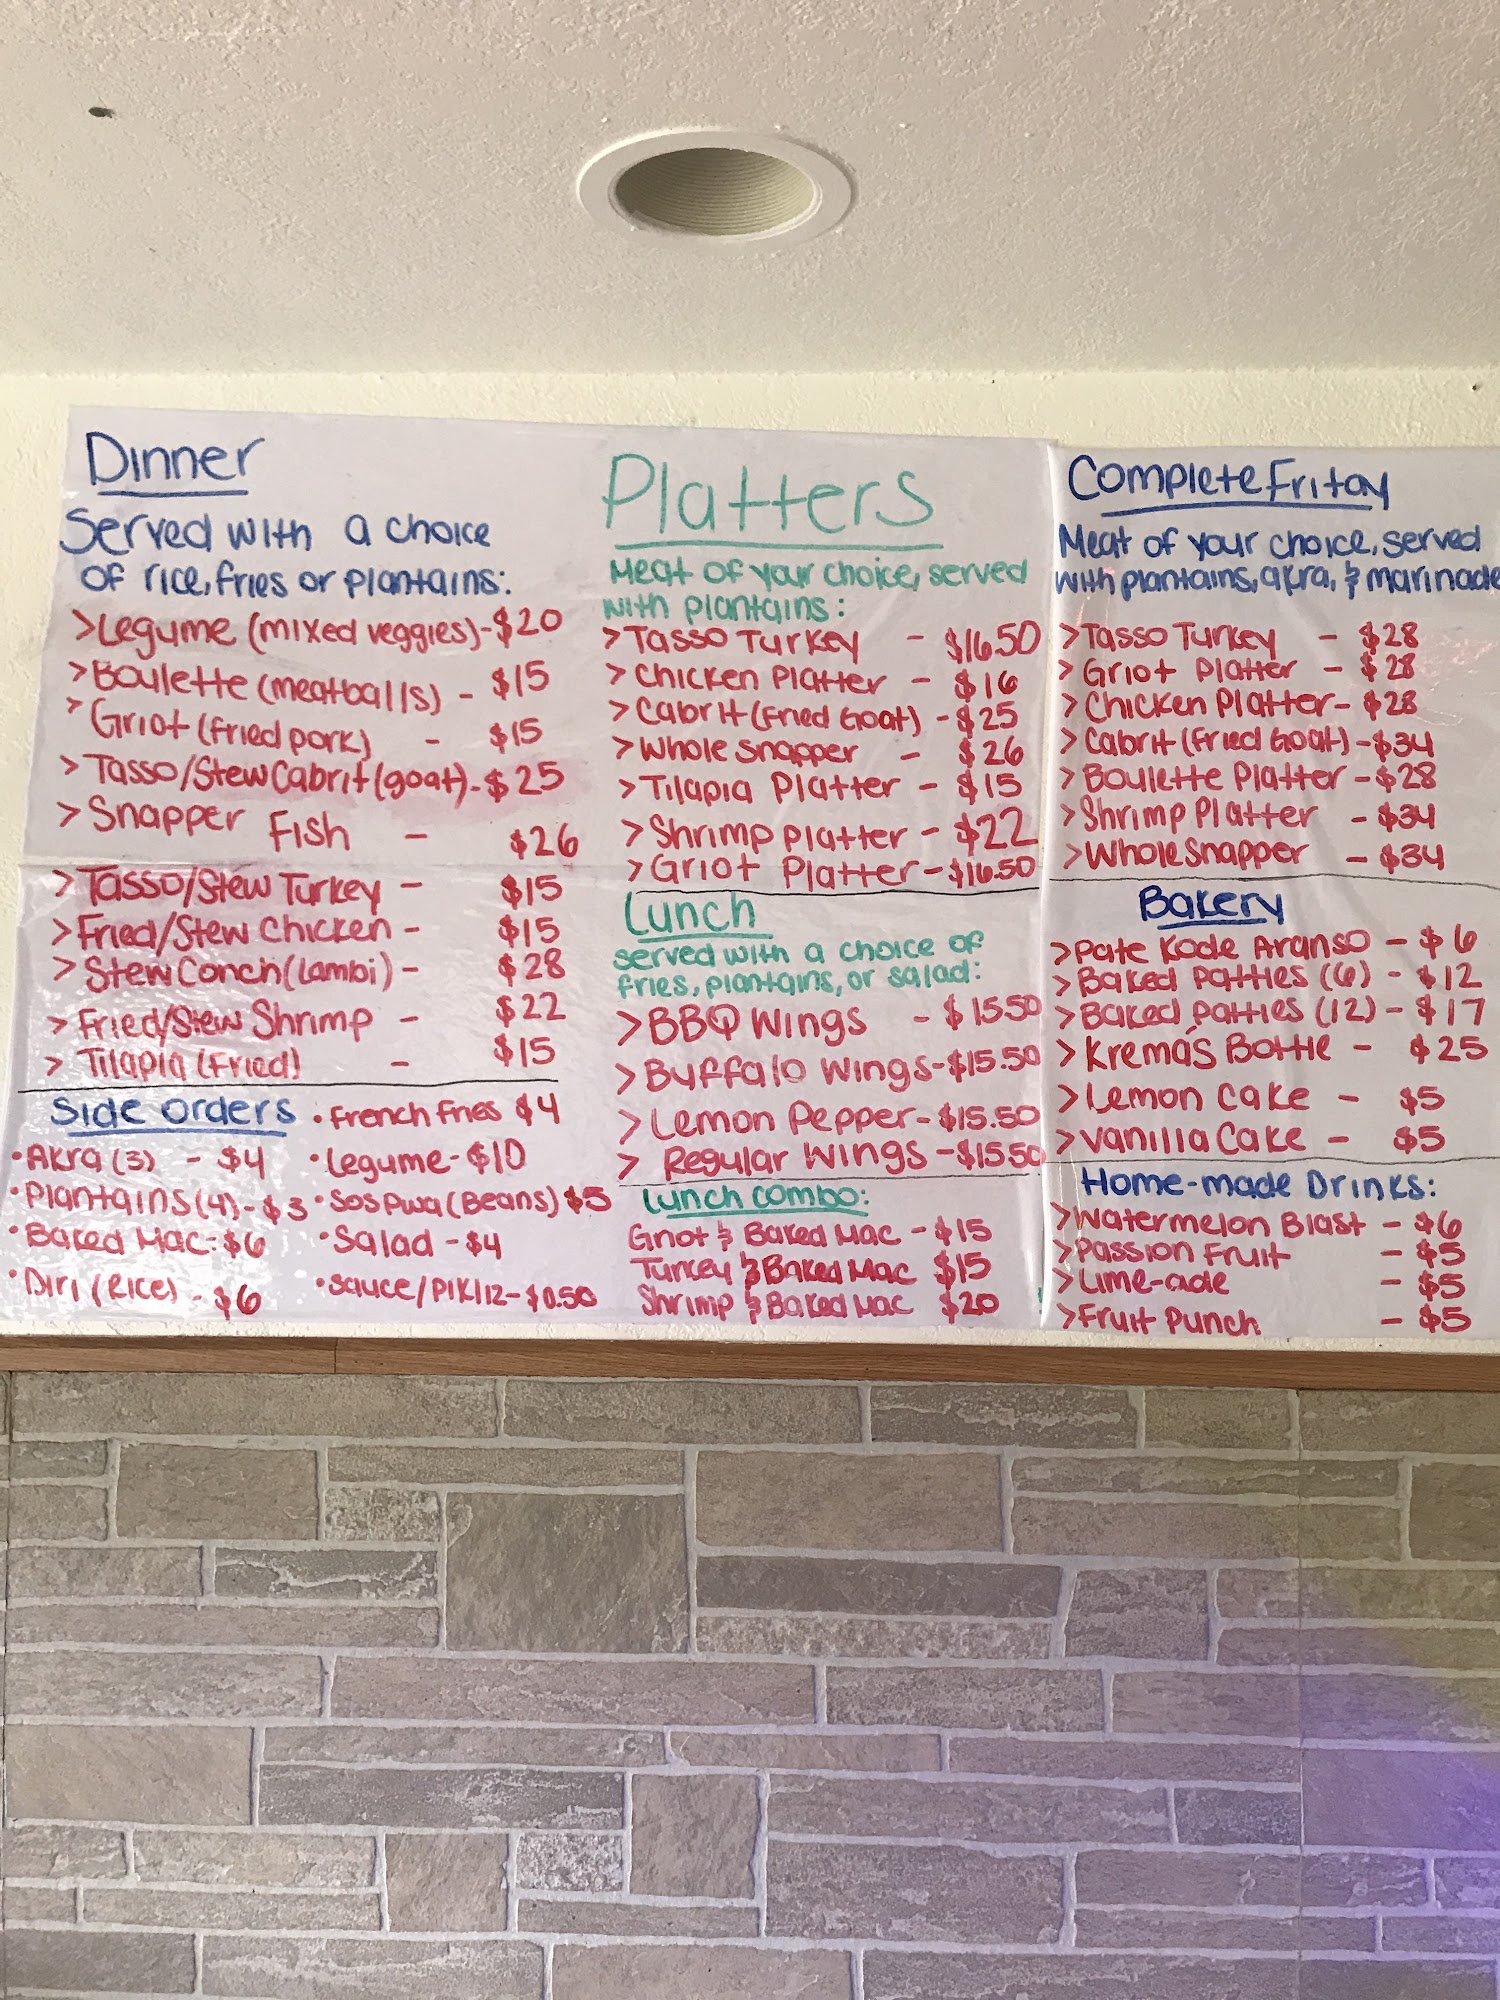 Dinner
Served with a choice
of rice, fries or plantains:
>Legume (mixed veggies)-$20
>Boulette (meatballs) - $15
>Griot (fried pork) - $15
>Tasso/Stew Cabrit (goat)-$25
>Snapper Fish - $26
>Tasso/Stew Turkey - $15
>Fried/Stew Chicken - $15
>Stew Conch (Lambi) - $28
>Fried/Stew Shrimp - $22
>Tilapia (Fried) - $15
Side Orders
•Akra (3) - $4
•Plantains (4)-$3
•Baked Mac-$6
•Diri (Rice) - $6
•French Fries $4
•Legume-$10
•Sos Pwa (Beans) $5
•Salad -$4
•Sauce/Pikliz-$0.50
Platters
Meat of your choice, served
with plantains:
>Tasso Turkey - $16.50
>Chicken Platter - $16
>Cabrit (Fried Goat) -$25
>Whole Snapper - $26
>Tilapia Platter - $15
>Shrimp Platter - $22
>Griot Platter-$16.50
Lunch
served with a choice of
fries, plantains, or salad:
>BBQ Wings - $15.50
>Buffalo Wings-$15.50
>Lemon Pepper-$15.50
> Regular Wings -$15.50
Lunch Combo:
Griot & Baked Mac - $15
Turkey & Baked Mac $15
Shrimp & Baked Mac $20
Complete Fritay
Meat of your choice, served
with plantains, akra, & marinade
>Tasso Turkey - $28
>Griot Platter - $28
>Chicken Platter- $28
>Cabrit (Fried Goat) -$34
>Boulette Platter -$28
>Shrimp Platter - $34
>Whole Snapper - $34
Bakery
>Pate Kode Aranso - $6
>Baked Patties (6) - $12
>Baked Patties (12) - $17
>Kremás Bottle - $25
>Lemon Cake - $5
>Vanilla Cake - $5
Home-made Drinks:
>Watermelon Blast - $6
>Passion Fruit - $5
>Lime-ade - $5
>Fruit Punch - $5